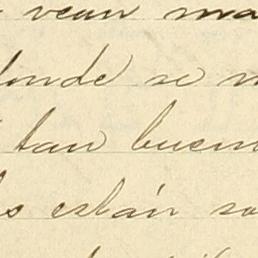 vean ma
donde se
tan buen
están so